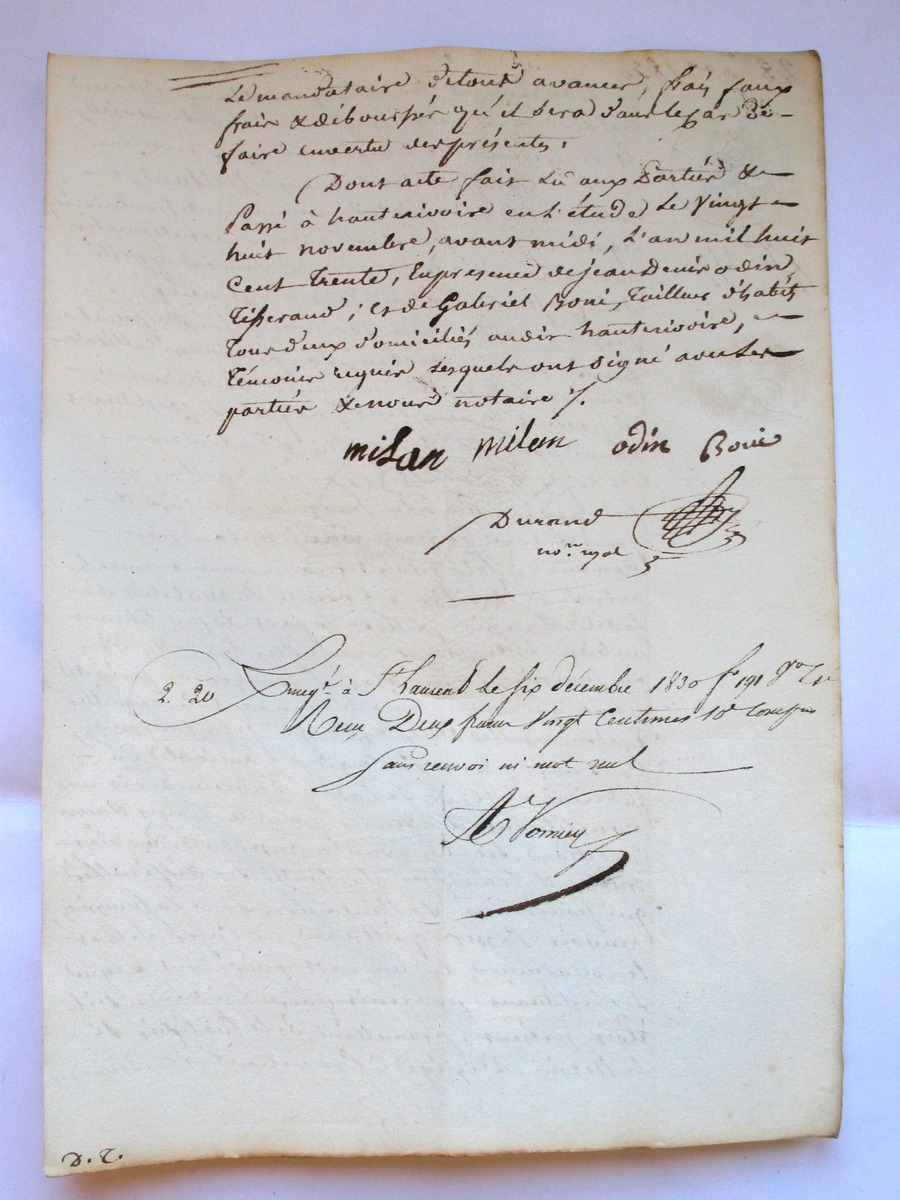 Le mandataire de tout avances, frais faux
frais & débourssés qu'il sera dans le cas de
faire en vertu des présentes.
Dont acte fait Lu aux Parties &
Passé à hauterivoire en L'étude Le Vingt
huit novembre, avant midi, L'an mil huit
Cent Trente, En présence de jean Denis odin,
Tisserand; et de Gabriel Boni, Tailleur d'habits
Tous deux Domiciliés audit hauterivoire,
Témoins requis lesquels ont signé avec Les
parties & nous notaire ./.
milan milan odin Boni
Durand
no.re royal
2. 20 Enreg.é à St Laurent Le six décembre 1830 f.o 191
Reçu Deux francs Vingt Centimes 10.e Compris
Sans renvoi ni mot nul
D. T.